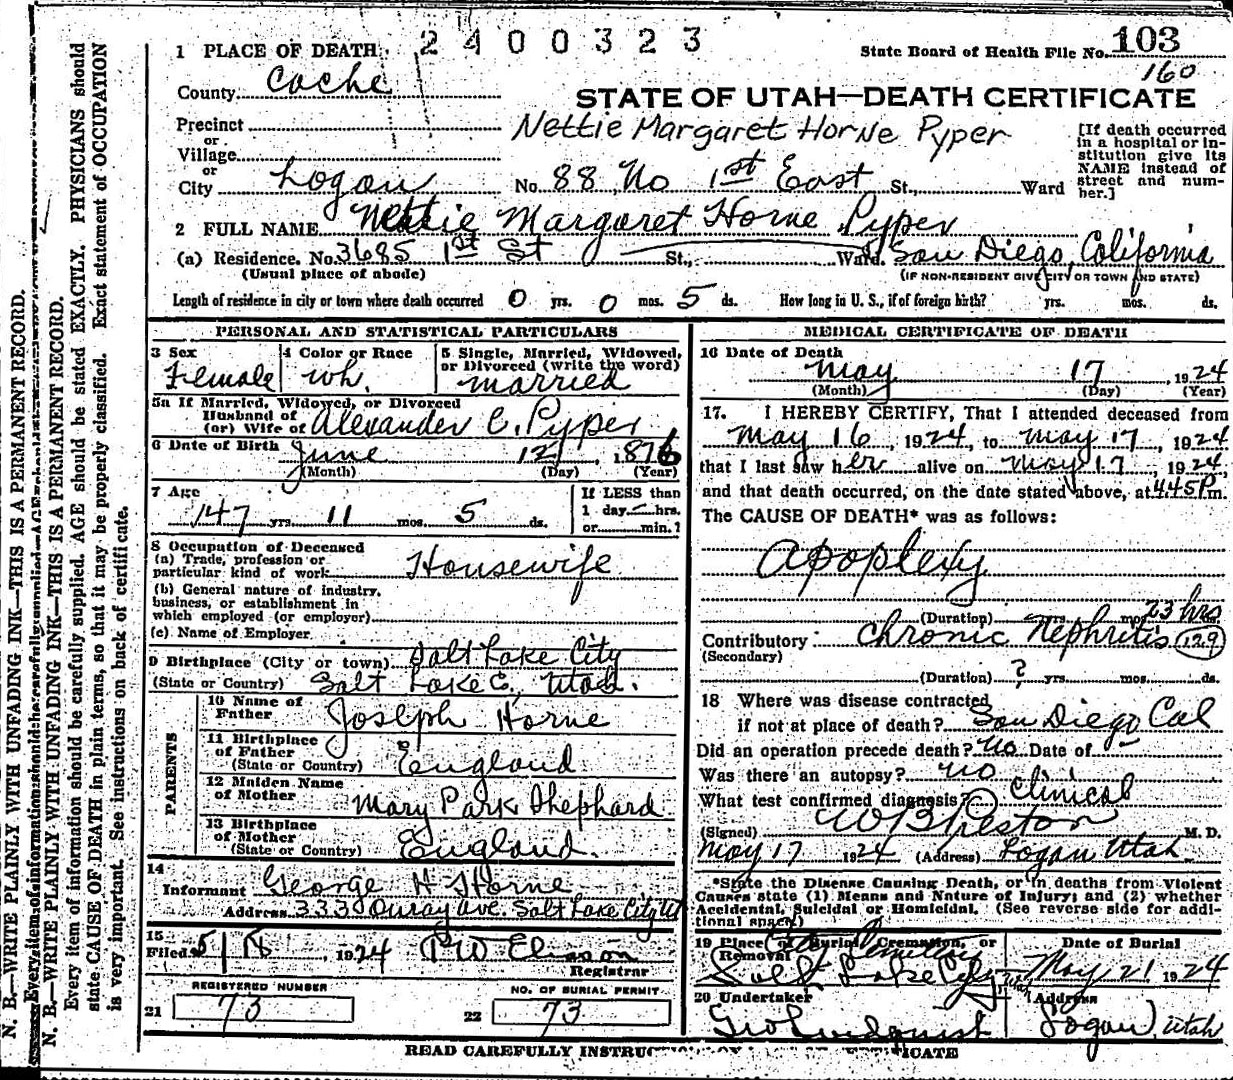 2400323
1 PLACE OF DEATH
State Board of Health File No. 103
160
County Cache
STATE OF UTAH—DEATH CERTIFICATE
Precinct
or
Village
or
City Logan No. 88 No 1st East St., Ward
Nettie Margaret Horne Pyper
[If death occurred
in a hospital or in-
stitution give its
NAME instead of
street and num-
ber.]
2 FULL NAME Nettie Margaret Horne Pyper
(a) Residence. No. 3685 1st St St., Ward. San Diego, California
(Usual place of abode) (IF NON-RESIDENT GIVE CITY OR TOWN AND STATE)
Length of residence in city or town where death occurred 0 yrs. 0 mos. 5 ds. How long in U. S., if of foreign birth? yrs. mos. ds.
PERSONAL AND STATISTICAL PARTICULARS
3 Sex Female
4 Color or Race Wh.
5 Single, Married, Widowed,
or Divorced (write the word)
married
5a If Married, Widowed, or Divorced
Husband of
(or) Wife of Alexander C. Pyper
6 Date of Birth June 12, 1876
(Month) (Day) (Year)
7 Age 47 yrs. 11 mos. 5 ds.
If LESS than
1 day — hrs.
or min.?
8 Occupation of Deceased
(a) Trade, profession or
particular kind of work Housewife
(b) General nature of industry,
business, or establishment in
which employed (or employer)
(c) Name of Employer
9 Birthplace (City or town) Salt Lake City
(State or Country) Salt Lake Co., Utah.
PARENTS
10 Name of
Father Joseph Horne
11 Birthplace
of Father
(State or Country) England
12 Maiden Name
of Mother Mary Park Shephard
13 Birthplace
of Mother
(State or Country) England.
14
Informant George H Horne
Address 333 Ouray Ave. Salt Lake City Ut
15
Filed 5/18, 1924
Registrar
REGISTERED NUMBER
21 73
NO. OF BURIAL PERMIT
22 73
MEDICAL CERTIFICATE OF DEATH
16 Date of Death
May 17, 1924
(Month) (Day) (Year)
17. I HEREBY CERTIFY, That I attended deceased from
May 16, 1924, to May 17, 1924
that I last saw her alive on May 17, 1924,
and that death occurred, on the date stated above, at 4.45 P.m.
The CAUSE OF DEATH* was as follows:
Apoplexy
(Duration) yrs. mos. 23 hrs.
Contributory Chronic Nephritis 129
(Secondary)
(Duration) ? yrs. mos. ds.
18 Where was disease contracted
if not at place of death? San Diego Cal
Did an operation precede death? no Date of
Was there an autopsy? no
What test confirmed diagnosis? Clinical
(Signed) W B Preston M. D.
May 17 1924 (Address) Logan Utah
*State the Disease Causing Death, or in deaths from Violent
Causes state (1) Means and Nature of Injury; and (2) whether
Accidental, Suicidal or Homicidal. (See reverse side for addi-
tional space)
19 Place of Burial, Cremation, or
Removal City Cemetery
Salt Lake City
Date of Burial
May 21 1924
20 Undertaker
Geo Lindquist
Address
Logan, Utah
READ CAREFULLY INSTRUC CERTIFICATE
N. B.—WRITE PLAINLY WITH UNFADING INK—THIS IS A PERMANENT RECORD.
Every item of information should be carefully supplied. AGE
N. B.—WRITE PLAINLY WITH UNFADING INK—THIS IS A PERMANENT RECORD.
Every item of information should be carefully supplied. AGE should be stated EXACTLY. PHYSICIANS should
state CAUSE OF DEATH in plain terms, so that it may be properly classified. Exact statement of OCCUPATION
is very important. See instructions on back of certificate.